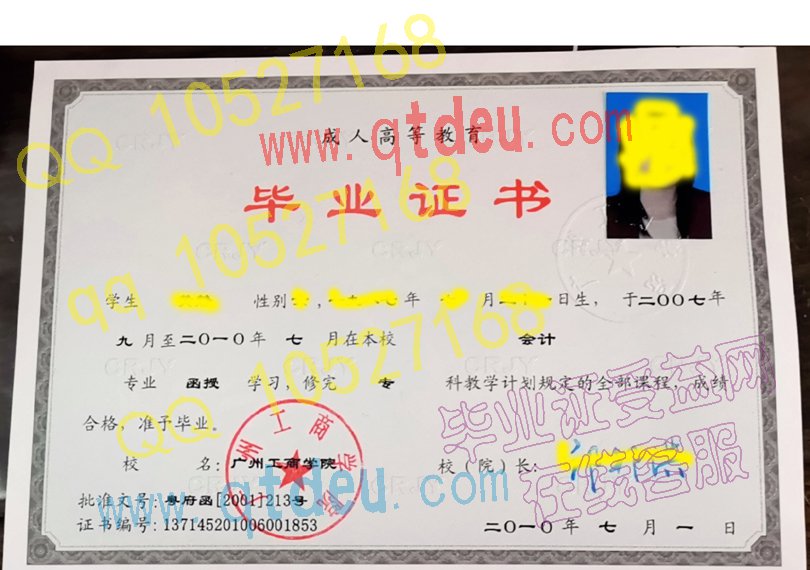 QQ 10527168
www.qtdeu.com
成人高等教育
毕业证书
qq 10527168
学生 性别 , 年 月 日生， 于二〇〇七年
九月至二〇一〇年 七 月在本校 会计
专业 函授 学习，修完 专 科教学计划规定的全部课程，成绩
合格，准予毕业。
QQ 10527168
毕业证受益网
在线客服
广州工商学院
校 名：广州工商学院 校（院）长：
www.qtdeu.com
批准文号：粤府函[2001]213号
证书编号：137145201006001853
二〇一〇年 七 月 一 日
CRJY
CRJY
CRJY
CRJY
CRJY
CRJY